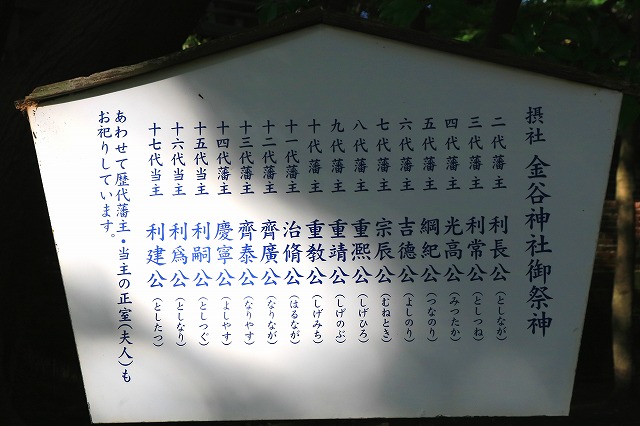 摂社 金谷神社御祭神
二代藩主 利長公(としなが)
三代藩主 利常公(としつね)
四代藩主 光高公(みつたか)
五代藩主 綱紀公(つなのり)
六代藩主 吉德公(よしのり)
七代藩主 宗辰公(むねとき)
八代藩主 重凞公(しげひろ)
九代藩主 重靖公(しげのぶ)
十代藩主 重教公(しげみち)
十一代藩主 治脩公(はるなが)
十二代藩主 齊廣公(なりなが)
十三代藩主 齊泰公(なりやす)
十四代藩主 慶寧公(よしやす)
十五代当主 利嗣公(としつぐ)
十六代当主 利爲公(としなり)
十七代当主 利建公(としたつ)
あわせて歴代藩主・当主の正室(夫人)も
お祀りしています。